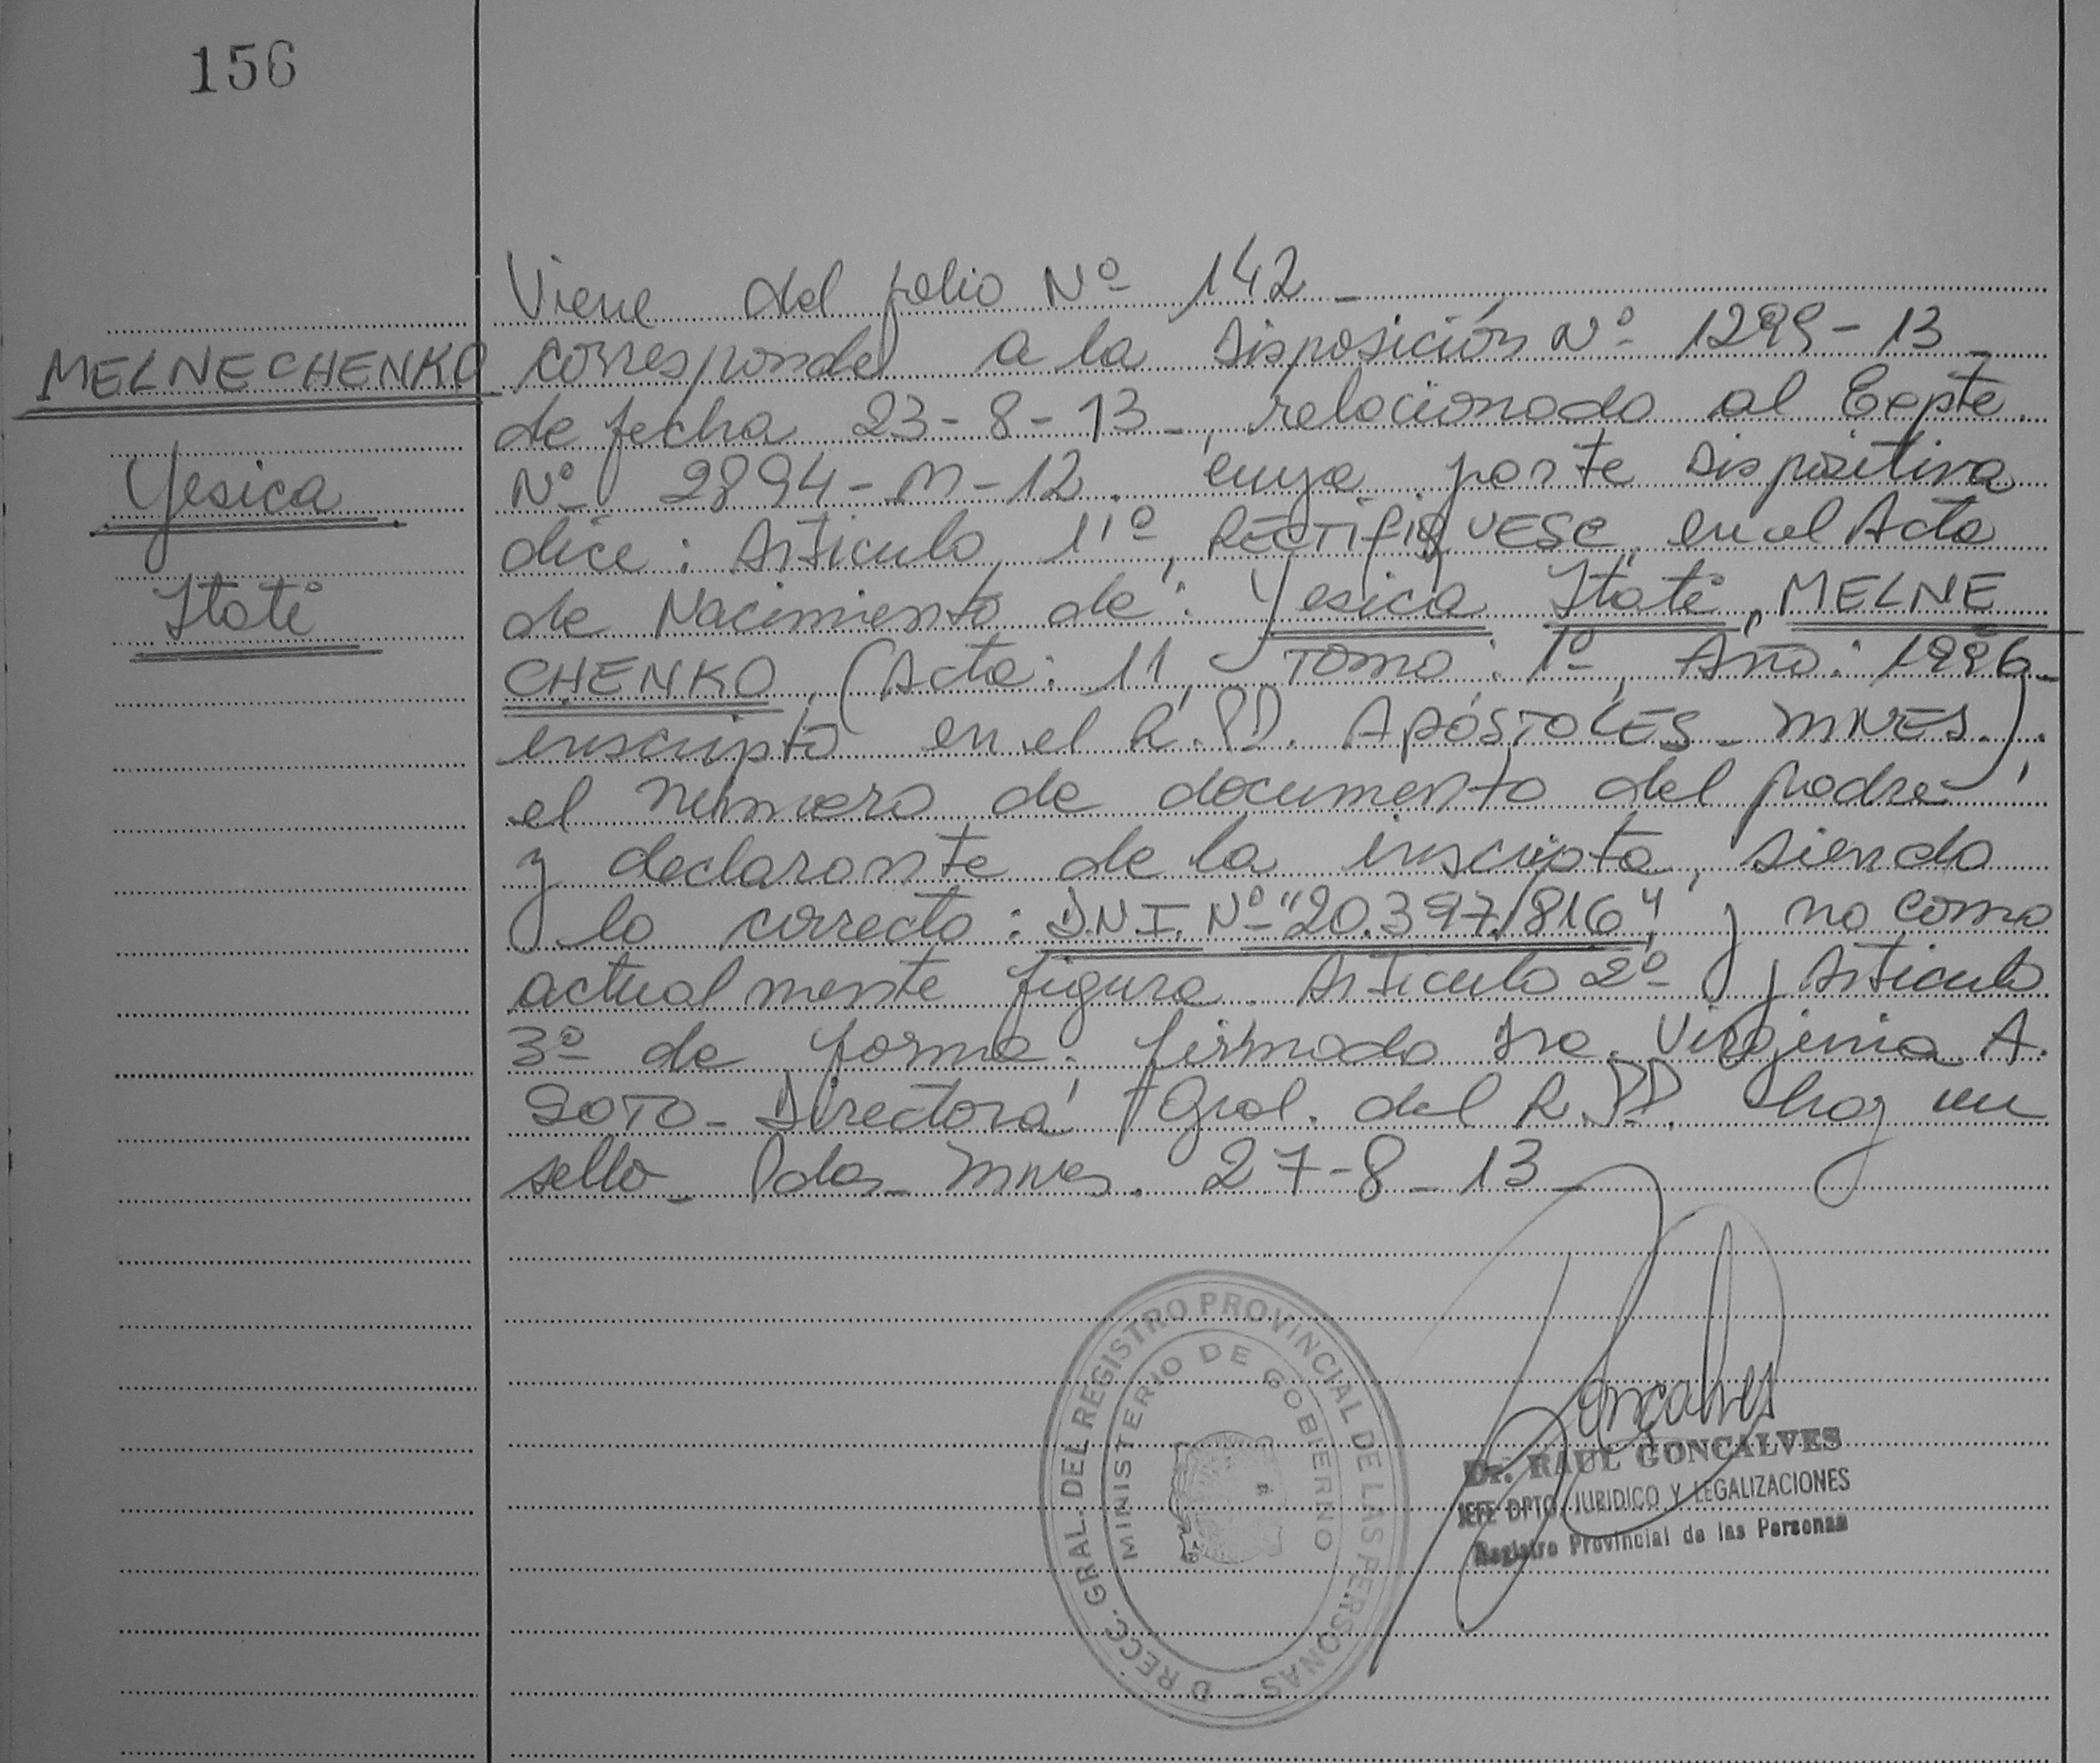 156
Viene del folio Nº 142 -
MELNECHENKO
Yesica
Itatí
corresponde a la disposición Nº 1299-13-
de fecha 23-8-13-, relacionado al Expte.
Nº 2894-M-12. cuya parte dispositiva
dice: Articulo 1º, RECTIFIQUESE, en el Acta
de Nacimiento de: Yesica Itatí, MELNE
CHENKO, (Acta: 11, Tomo: 1º, Año: 1996-
inscripta en el R.PP. APÓSTOLES - MNES.).
el número de documento del padre
y declarante de la inscripta, siendo
lo correcto: D.N.I. Nº "20.397.816", y no como
actualmente figura. Articulo 2º y Articulo
3º de forma. firmado Dra. Virginia A.
SOTO - Directora Gral. del R.PP. hay un
sello - Pdas - Mnes. 27-8-13-
DIRECC. GRAL. DEL REGISTRO PROVINCIAL DE LAS PERSONAS -
MINISTERIO DE GOBIERNO
Goncalves
Dr. RAUL GONCALVES
JEFE DPTO. JURIDICO Y LEGALIZACIONES
Registro Provincial de las Personas